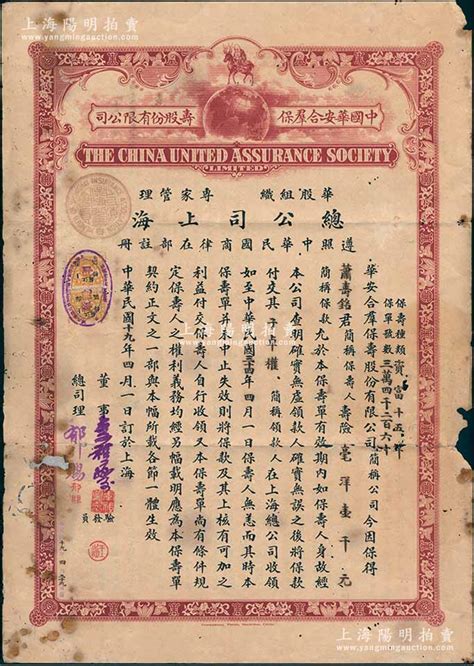 上海陽明拍賣
www.yangmingauction.com
中國華安合羣保壽股份有限公司
THE CHINA UNITED ASSURANCE SOCIETY
LIMITED
華股組織 專家管理
總公司上海
遵照中華民國商律在部註冊
保壽種類 資富十五年
保單號數 三萬四千二百六十
華安合羣保壽股份有限公司簡稱公司今因保得
蕭壽銘君簡稱保壽人壽險毫洋壹千元
簡稱保款允於本保壽單有效期內如保壽人身故經
本公司查明確實無虛領款人確實無誤之後將保款
付交其子權簡稱領款人在上海總公司收領
如至中華民國三十四年四月一日保壽人無恙而其時本
保壽單并未中止失效則將保款及其上核有可加之
利益付交保壽人自行收領又本保壽單尚有條件規
定保壽人之權利義務均經另幅載明應為本保壽單
契約正文之一部與本幅所載各節一體生效
中華民國十九年四月一日訂於上海
董事
總司理
驗發員
上海陽明拍賣
www.yangmingauction.com